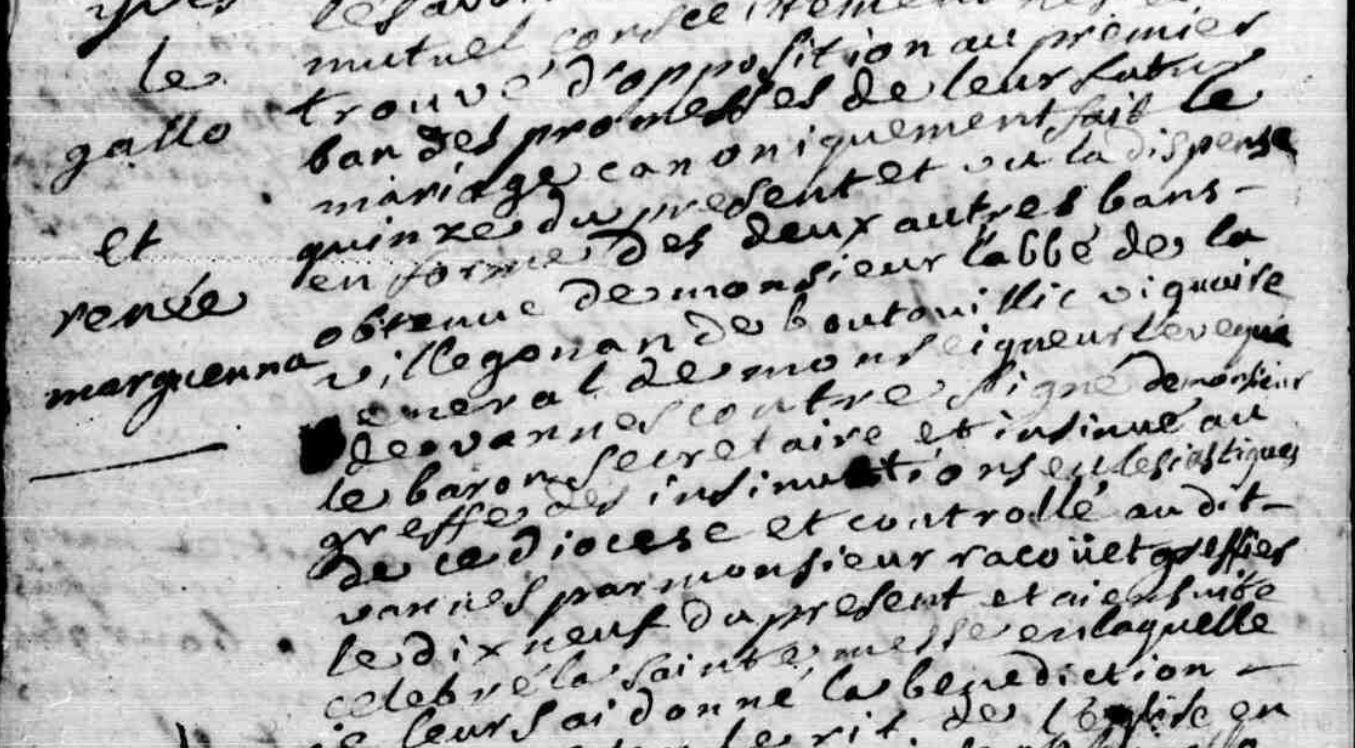 yves
le
gallo
et
renée
marguenna
mutuel consentement
trouvé d'opposition au premier
ban des promesses de leur futur
mariage canoniquement fait le
quinze du present et vu la dispense
en forme des deux autres bans -
obtenue de monsieur l'abbé de la
villegonan de boutouillic viquaire
general de monseigneur leveque
de vannes contre signé de monsieur
le baron secretaire et insinué au
greffe des insinuations eclesiastiques
de ce diocese et controllé au dit -
vannes par monsieur racoüet greffier
le dix neuf du present et ai ensuite
celebré la sainte messe en laquelle
je leurs ai donné la benediction -
le rit de l'eglise en